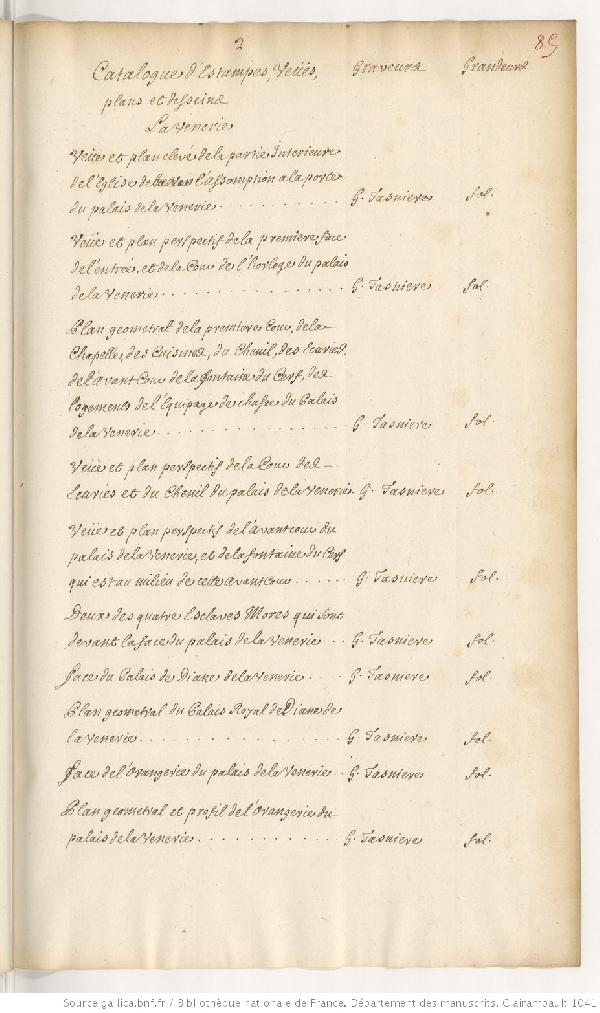 2
85
Catalogue d'Estampes, Veües, Graveurs Grandeurs
plans et desseins
La Venerie
Veüe et plan elevé de la partie Interieure
de l'Eglise de l'assomption a la porte
du palais de la Venerie . . . . . . . . . . . G. Tasniere fol.
Veüe et plan perspectif de la premiere face
de l'entrée, et de la Cour de l'horloge du palais
de la Venerie . . . . . . . . . . . . . . . . G. Tasniere fol.
Plan geometral de la premiere Cour, de la
Chapelle, des Cuisines, du Chenil, des Ecuries,
de l'avant Cour de la fontaine du Cerf, des
logements de l'Equipage de chasse du Palais
de la Venerie . . . . . . . . . . . . . . . . G. Tasniere fol.
Veüe et plan perspectif de la Cour des
Ecuries et du Chenil du palais de la Venerie. G. Tasniere fol.
Veüe et plan perspectif de l'avant cour du
palais de la Venerie, et de la fontaine du Cerf
qui est au milieu de cette avant Cour . . . . . G. Tasniere fol.
Deux des quatre Esclaves Mores qui sont
devant la face du palais de la Venerie . . G. Tasniere fol.
face du Palais de Diane de la Venerie . . . . G. Tasniere fol.
Plan geometral du Palais Royal de Diane de
la Venerie . . . . . . . . . . . . . . . . . G. Tasniere fol.
face de l'Orangerie du palais de la Venerie . . G. Tasniere fol.
Plan geometral et profil de l'Orangerie du
palais de la Venerie . . . . . . . . . . . . . G. Tasniere fol.
Source gallica.bnf.fr / Bibliothèque nationale de France. Département des manuscrits. Clairambault 1041